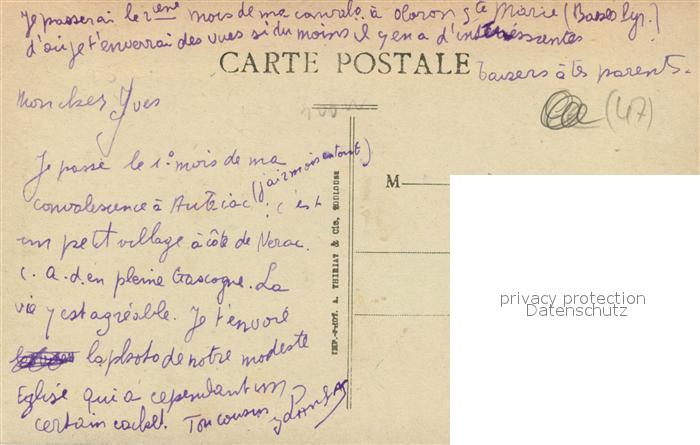 Je passerai le 2ème mois de ma convalo. à Oloron Ste Marie (Basses Pyr.)
d'où je t'enverrai des vues si du moins il y en a d'intéressantes
CARTE POSTALE
Baisers à tes parents.
Mon cher Yves
(47)
Je passe le 1º mois de ma
(j'ai 2 mois en tout)
convalescence à ! c'est
un petit village à côté de Nérac.
c. a. d. en pleine Gascogne. La
vie y est agréable. Je t'envoie
la photo de notre modeste
Eglise qui a cependant un
certain cachet. Ton cousin
M
IMP.-PHOT. A. THIRIAT & Cie, TOULOUSE
privacy protection
Datenschutz